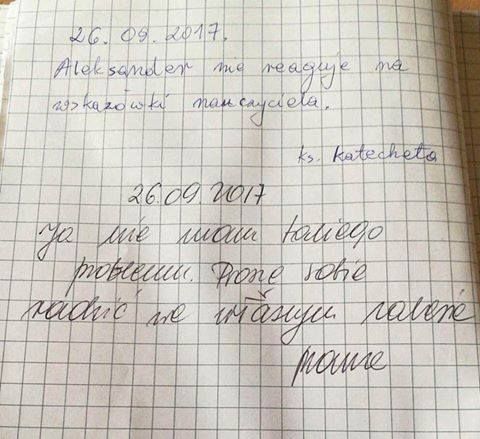 26.09.2017.
Aleksander nie reaguje na
wskazówki nauczyciela.
ks. katecheta
26.09.2017
Ja nie mam takiego
problemu. Proszę sobie
radzić we własnym zakresie
mama